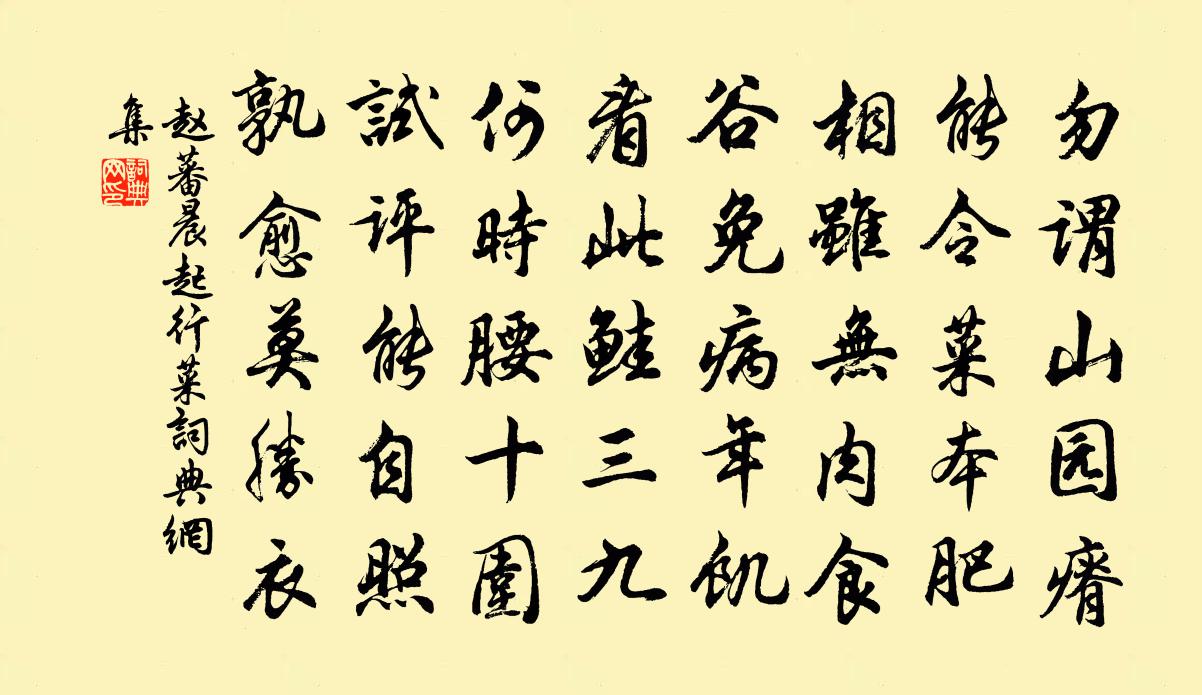 勿謂山园瘠
能令菜本肥
相雖無肉食
谷免病年飢
看此鲑三九
何時腰十圍
試评能自照
孰愈莫勝衣
赵蕃晨起行菜詞典網
集
詞典網印